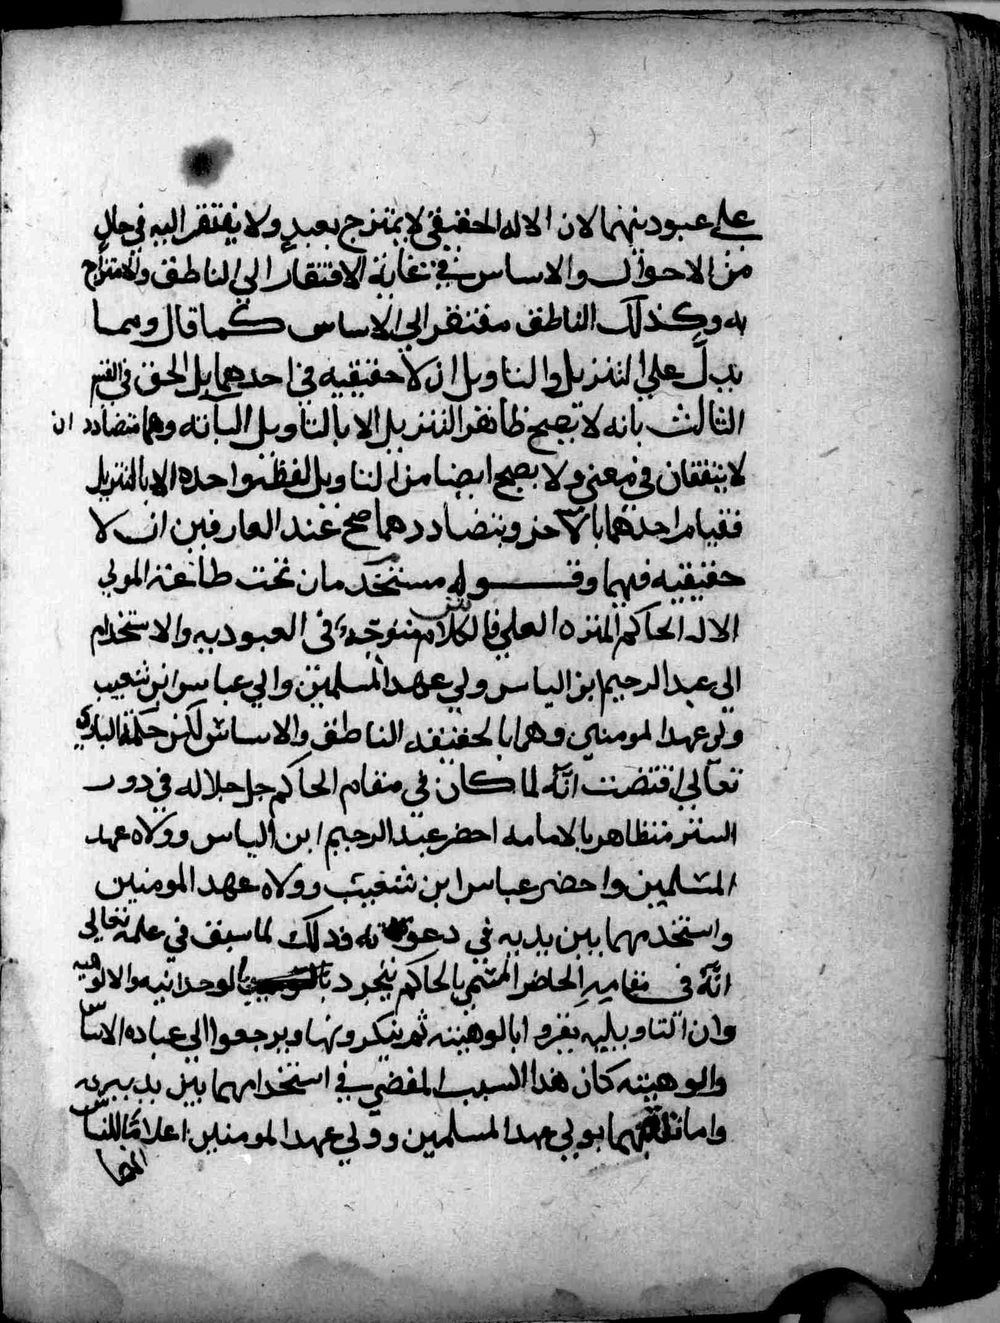 على عبوديتهما لان الاله الحقيقي لا يمتزج بعبدٍ ولا يفتقر اليه في حالٍ
من الاحوال والاساس في غاية الافتقار الي الناطق والامتزاج
به وكذلك الناطق مفتقر الى الاساس كما قال ومما
يدلّ علي التنزيل والتاويل ان لا حقيقيه في احدهما بل الحق في القسم
الثالث بانه لا يصح ظاهر التنزيل الا بالتاويل البانه وهما متضادد ان
لا يتفقان في معني ولا يصح ايضا من التاويل لفظه واحده الا بالتنزيل
فقيام احدهما بالآخر وبتضاددهما صح عند العارفين ان لا
حقيقيه فيهما وقوله مستخدمان تحت طاعة المولي
الاله الحاكم المنزه العلي فالكلام متوجّه في العبوديه والاستخدام
الي عبد الرحيم ابن الياس ولي عهد المسلمين والي عباس ابن شعيب
ولي عهد المومنين وهما بالحقيقه الناطق والاساس لكن حكمة الباري
تعالي اقتضت انّه لما كان في مقام الحاكم جل جلاله في دور
الستر متظاهر بالامامه احضر عبد الرحيم ابن الياس وولاه عهد
المسلمين واحضر عباس ابن شعيب وولاه عهد المومنين
واستخدمهما بين يديه في دعوته وذلك لما سبق في علمه تعالي
انّه في مقامه الحاضر المسمي بالحاكم يتجرد بالوحدانيه والالوهيه
وان التاويليه يقروا بالوهيته ثم ينكرونها ويرجعوا الي عباده الاساس
والوهيته كان هذا السبب المفضي في استخدامهما بين يديه
واما بولي عهد المسلمين وولي عهد المومنين اعلامًا للناس